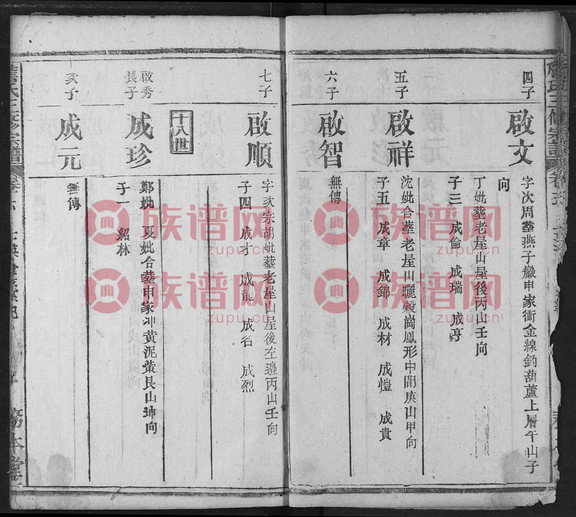 四子
啟文
字次周塟燕子巖申家衝金線釣葫蘆上層午山子
向
丁妣塟老屋山屋後丙山壬向
子三 成倫 成瑞 成亭
五子
啟祥
沈妣塟老屋山曬穀崗鳳形中間庚山甲向
子五 成章 成錦 成材 成愷 成貴
六子
啟智
無傳
七子
啟順
字亥宗胡妣塟老屋山屋後左邊丙山壬向
子四 成才 成龍 成名 成烈
十八世
啟秀
長子
成珍
鄭妣 夏妣合塟申家冲黄泥塝艮山坤向
子一 紹林
亥子
成元
無傳
氏三修宗譜
務本堂
族谱网
zupu.cn